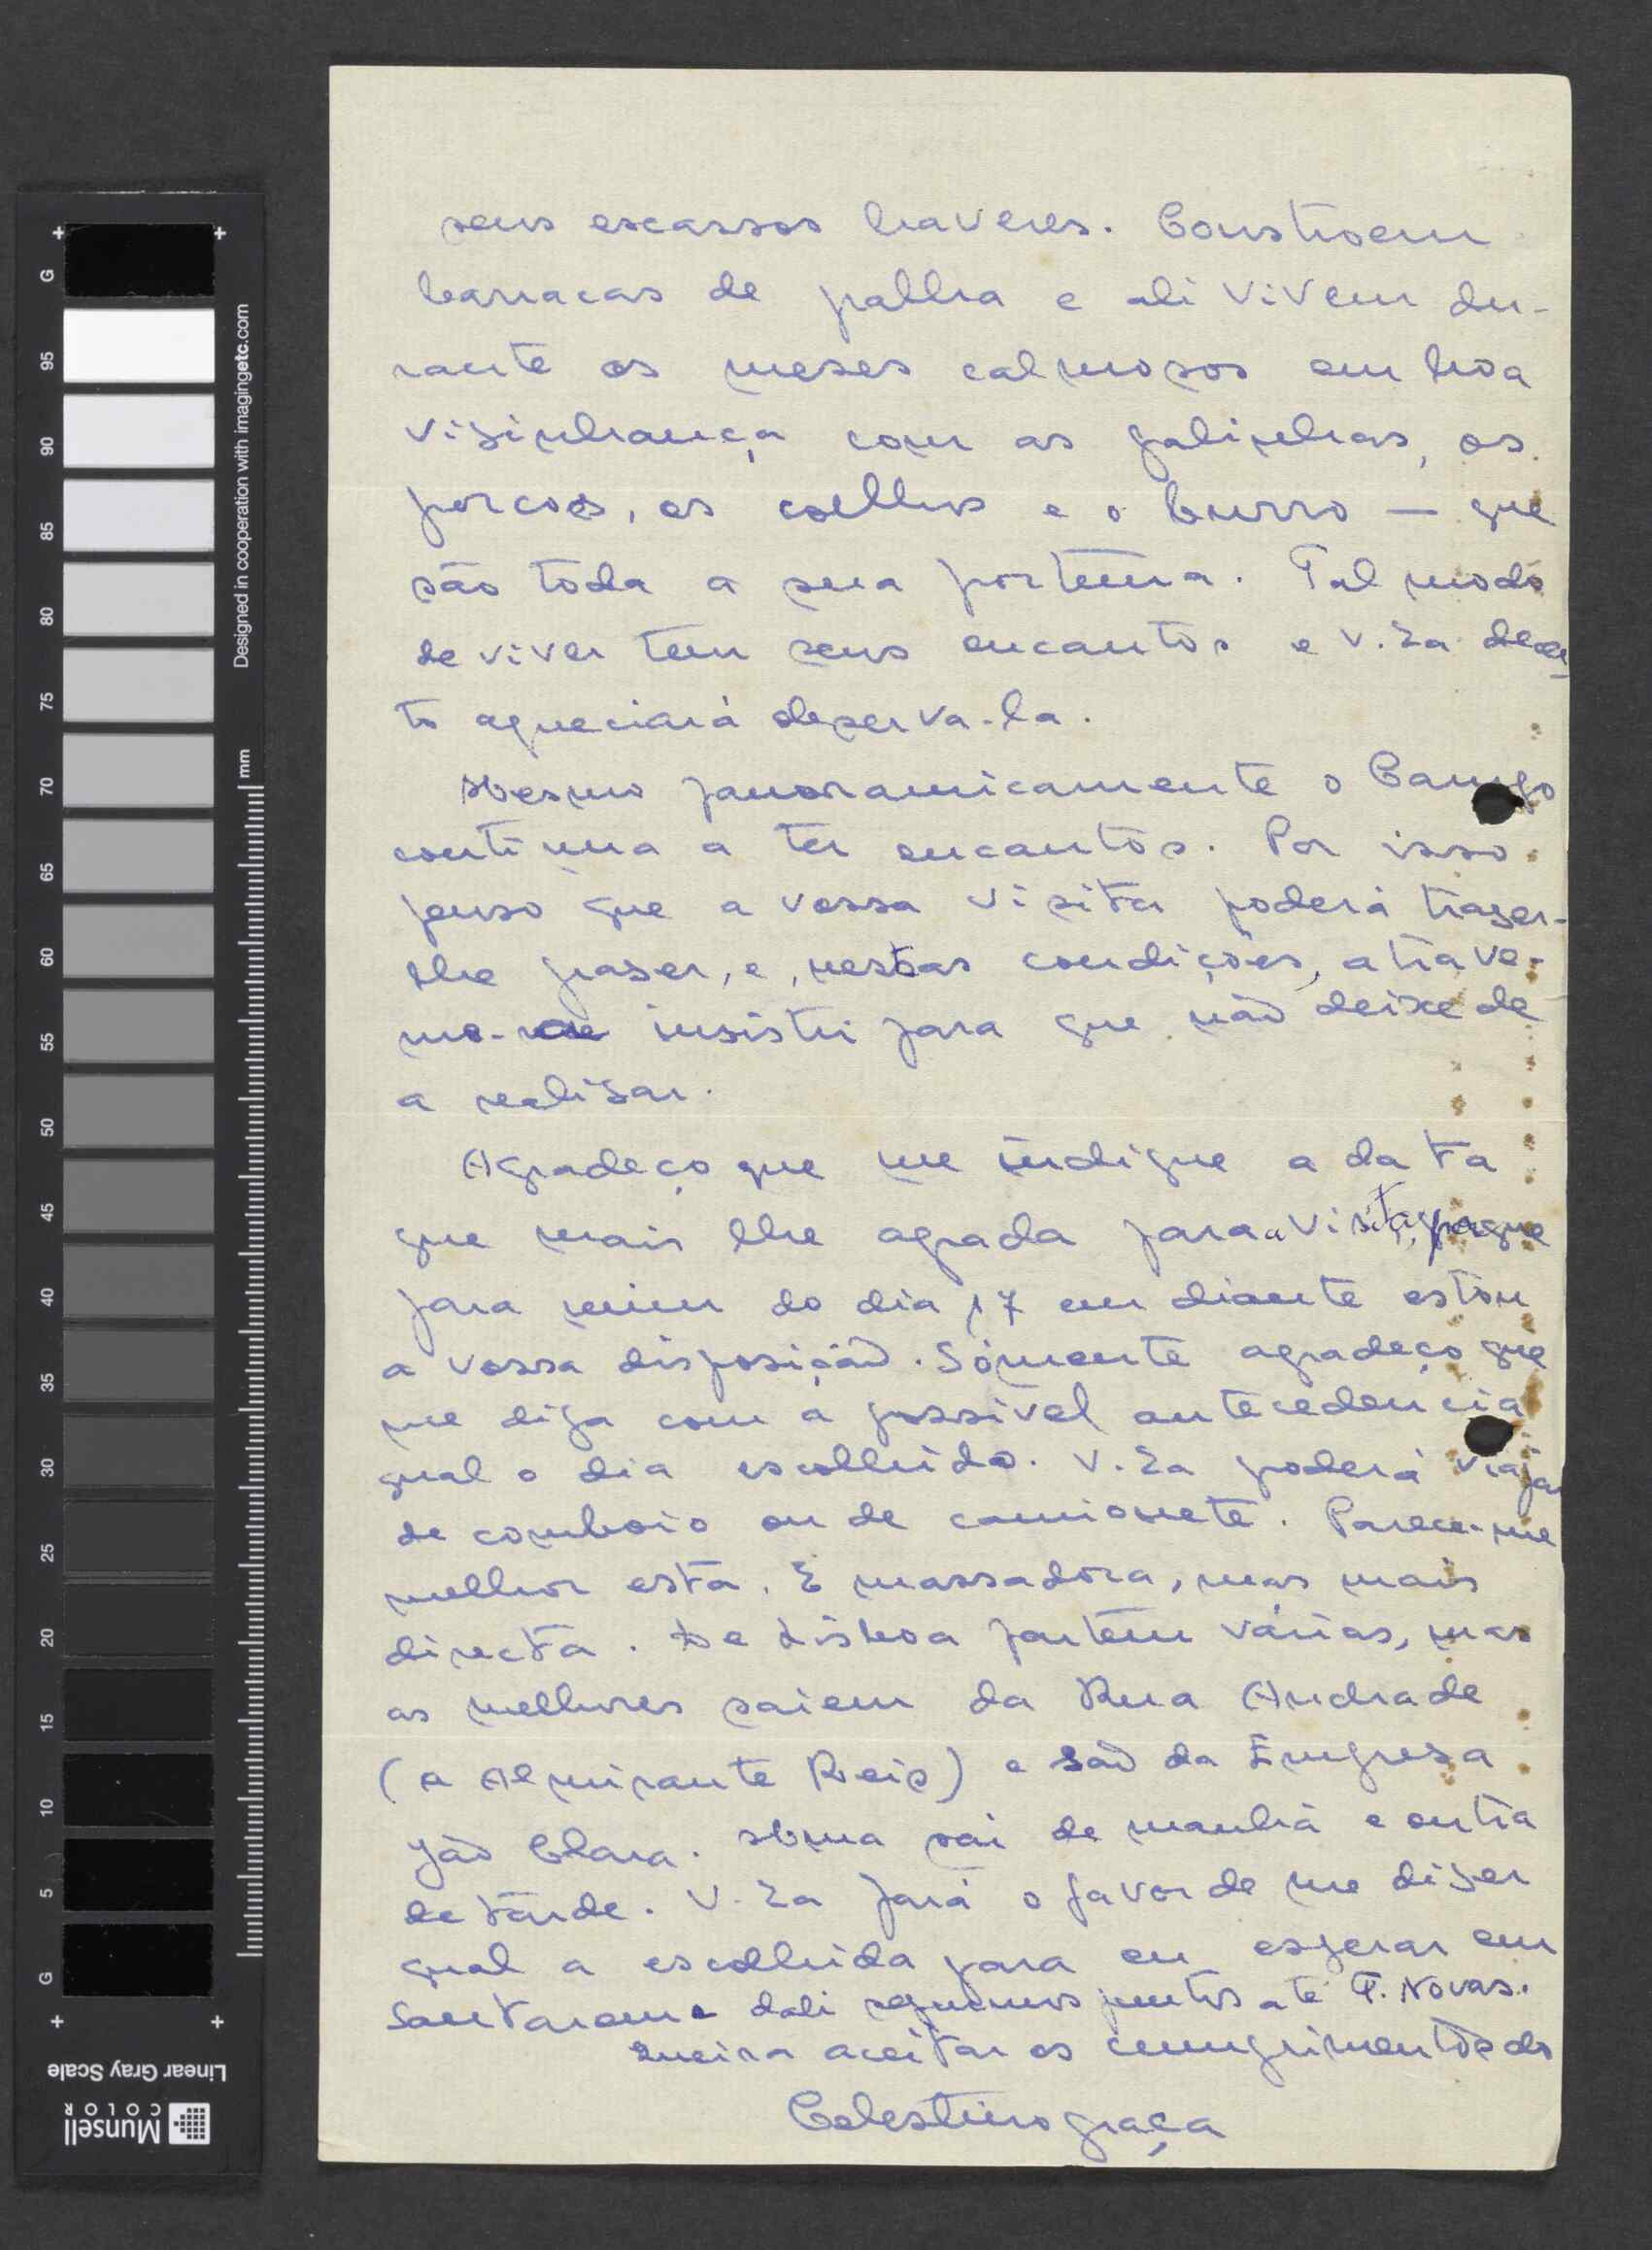 seus escassos haveres. Constroem
barracas de palha e ali vivem du-
rante os meses calmosos em boa
visinhança com as galinhas, os
porcos, os coelhos e o burro — que
são toda a sua fortuna. Tal modo
de viver tem seus encantos e V. Ea decer
to apreciará observa-la.
Mesmo panoramicamente o Campo
continua a ter encantos. Por isso
penso que a vossa visita poderá trazer-
lhe prazer, e, nestas condições, atreve-
mo- insistir para que não deixe de
a realizar.
Agradeço que me indique a data
que mais lhe agrada para a visita, porque
para mim do dia 17 em diante estou
a vossa disposição. Sómente agradeço que
me diga com a possivel antecedencia
qual o dia escolhido. V. Ea poderá viajar
de comboio ou de camionete. Parece-me
melhor esta. É massadora, mas mais
directa. De Lisboa partem várias, mas
as melhores saiem da Rua Andrade
(a Almirante Reis) e são da Empresa
João Clara. Uma sai de manhã e outra
de tarde. V. Ea fará o favor de me dizer
qual a escolhida para eu esperar em
Santarem e dali seguimos juntos até T. Novas.
Queira aceitar os cumprimentos do
Celestino Graça
G
95
90
85
80
75
70
65
60
55
50
45
40
35
30
25
20
15
10
5
G
mm
Designed in cooperation with imagingetc.com
Linear Gray Scale
Munsell
COLOR